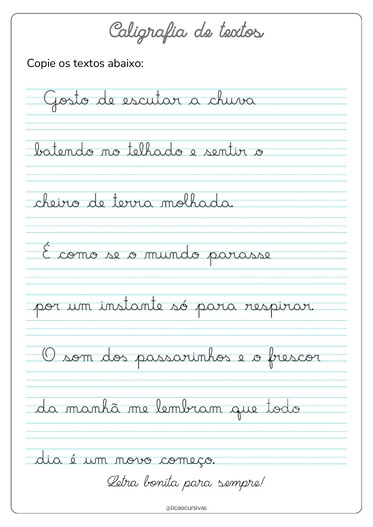 Caligrafia de textos
Copie os textos abaixo:
Gosto de escutar a chuva
batendo no telhado e sentir o
cheiro de terra molhada.
É como se o mundo parasse
por um instante só para respirar.
O som dos passarinhos e o frescor
da manhã me lembram que todo
dia é um novo começo.
Letra bonita para sempre!
@licaocursivas